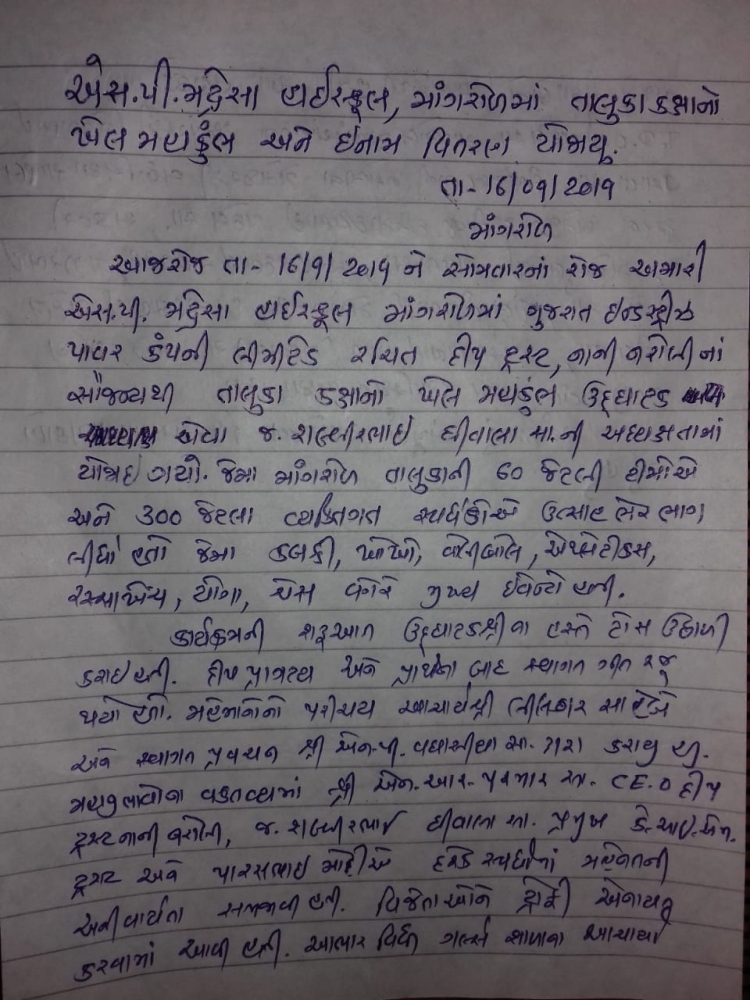 એસ.પી.મદ્રેસા હાઈસ્કૂલ, માંગરોળમાં તાલુકા કક્ષાનો
ખેલ મહાકુંભ અને ઈનામ વિતરણ યોજાયુ.
તા-16/09/2019
માંગરોળ
આજરોજ તા-16/9/2019 ને સોમવારનાં રોજ અમારી
એસ.પી. મદ્રેસા હાઈસ્કૂલ માંગરોળમાં ગુજરાત ઇન્ડસ્ટ્રીઝ
પાવર કંપની લીમીટેડ રચિત દીપ ટ્રસ્ટ, નાની નરોલીનાં
સૌજન્યથી તાલુકા કક્ષાનો ખેલ મહાકુંભ ઉદ્ઘાટક
એવા જ. શબ્બીરભાઇ ઘીવાલા સા.ની અધ્યક્ષતામાં
યોજાઇ ગયો. જેમા માંગરોળ તાલુકાની 60 જેટલી ટીમોએ
અને 300 જેટલા વ્યક્તિગત સ્પર્ધકોએ ઉત્સાહભેર ભાગ
લીધો હતો જેમા કબડ્ડી, ખોખો, વોલીબોલ, એથ્લેટીકસ,
રસ્સાખેંચ, યોગા, ચેસ વગેરે મુખ્ય ઈવેન્ટો હતી.
કાર્યક્રમની શરૂઆત ઉદ્ઘાટકશ્રીના હસ્તે ટોસ ઉછાળી
કરાઇ હતી. દીપ પ્રાગટ્ય અને પ્રાર્થના બાદ સ્વાગત ગીત રજૂ
થયો હતો. મહેમાનોનો પરીચય આચાર્યશ્રી સાહેબે
અને સ્વાગત પ્રવચન શ્રી એન.પી. વઘાસીયા સા. દ્વારા કરાયુ હતુ.
મહાનુભાવોના વકતવ્યમાં શ્રી એન.આર. પરમાર સા. C.E.O દીપ
ટ્રસ્ટ નાની નરોલી, જ. શબ્બીરભાઈ ઘીવાલા સા. પ્રમુખ કે.આઇ.એન.
ટ્રસ્ટ અને પારસભાઇ મોદીએ દરેક સ્પર્ધામાં મહેનતની
અનીવાર્યતા સમજાવી હતી. વિજેતાઓને ટ્રોફી એનાયત
કરવામાં આવી હતી. આભાર વિધિ ગર્લ્સ શાળાના આચાર્યા